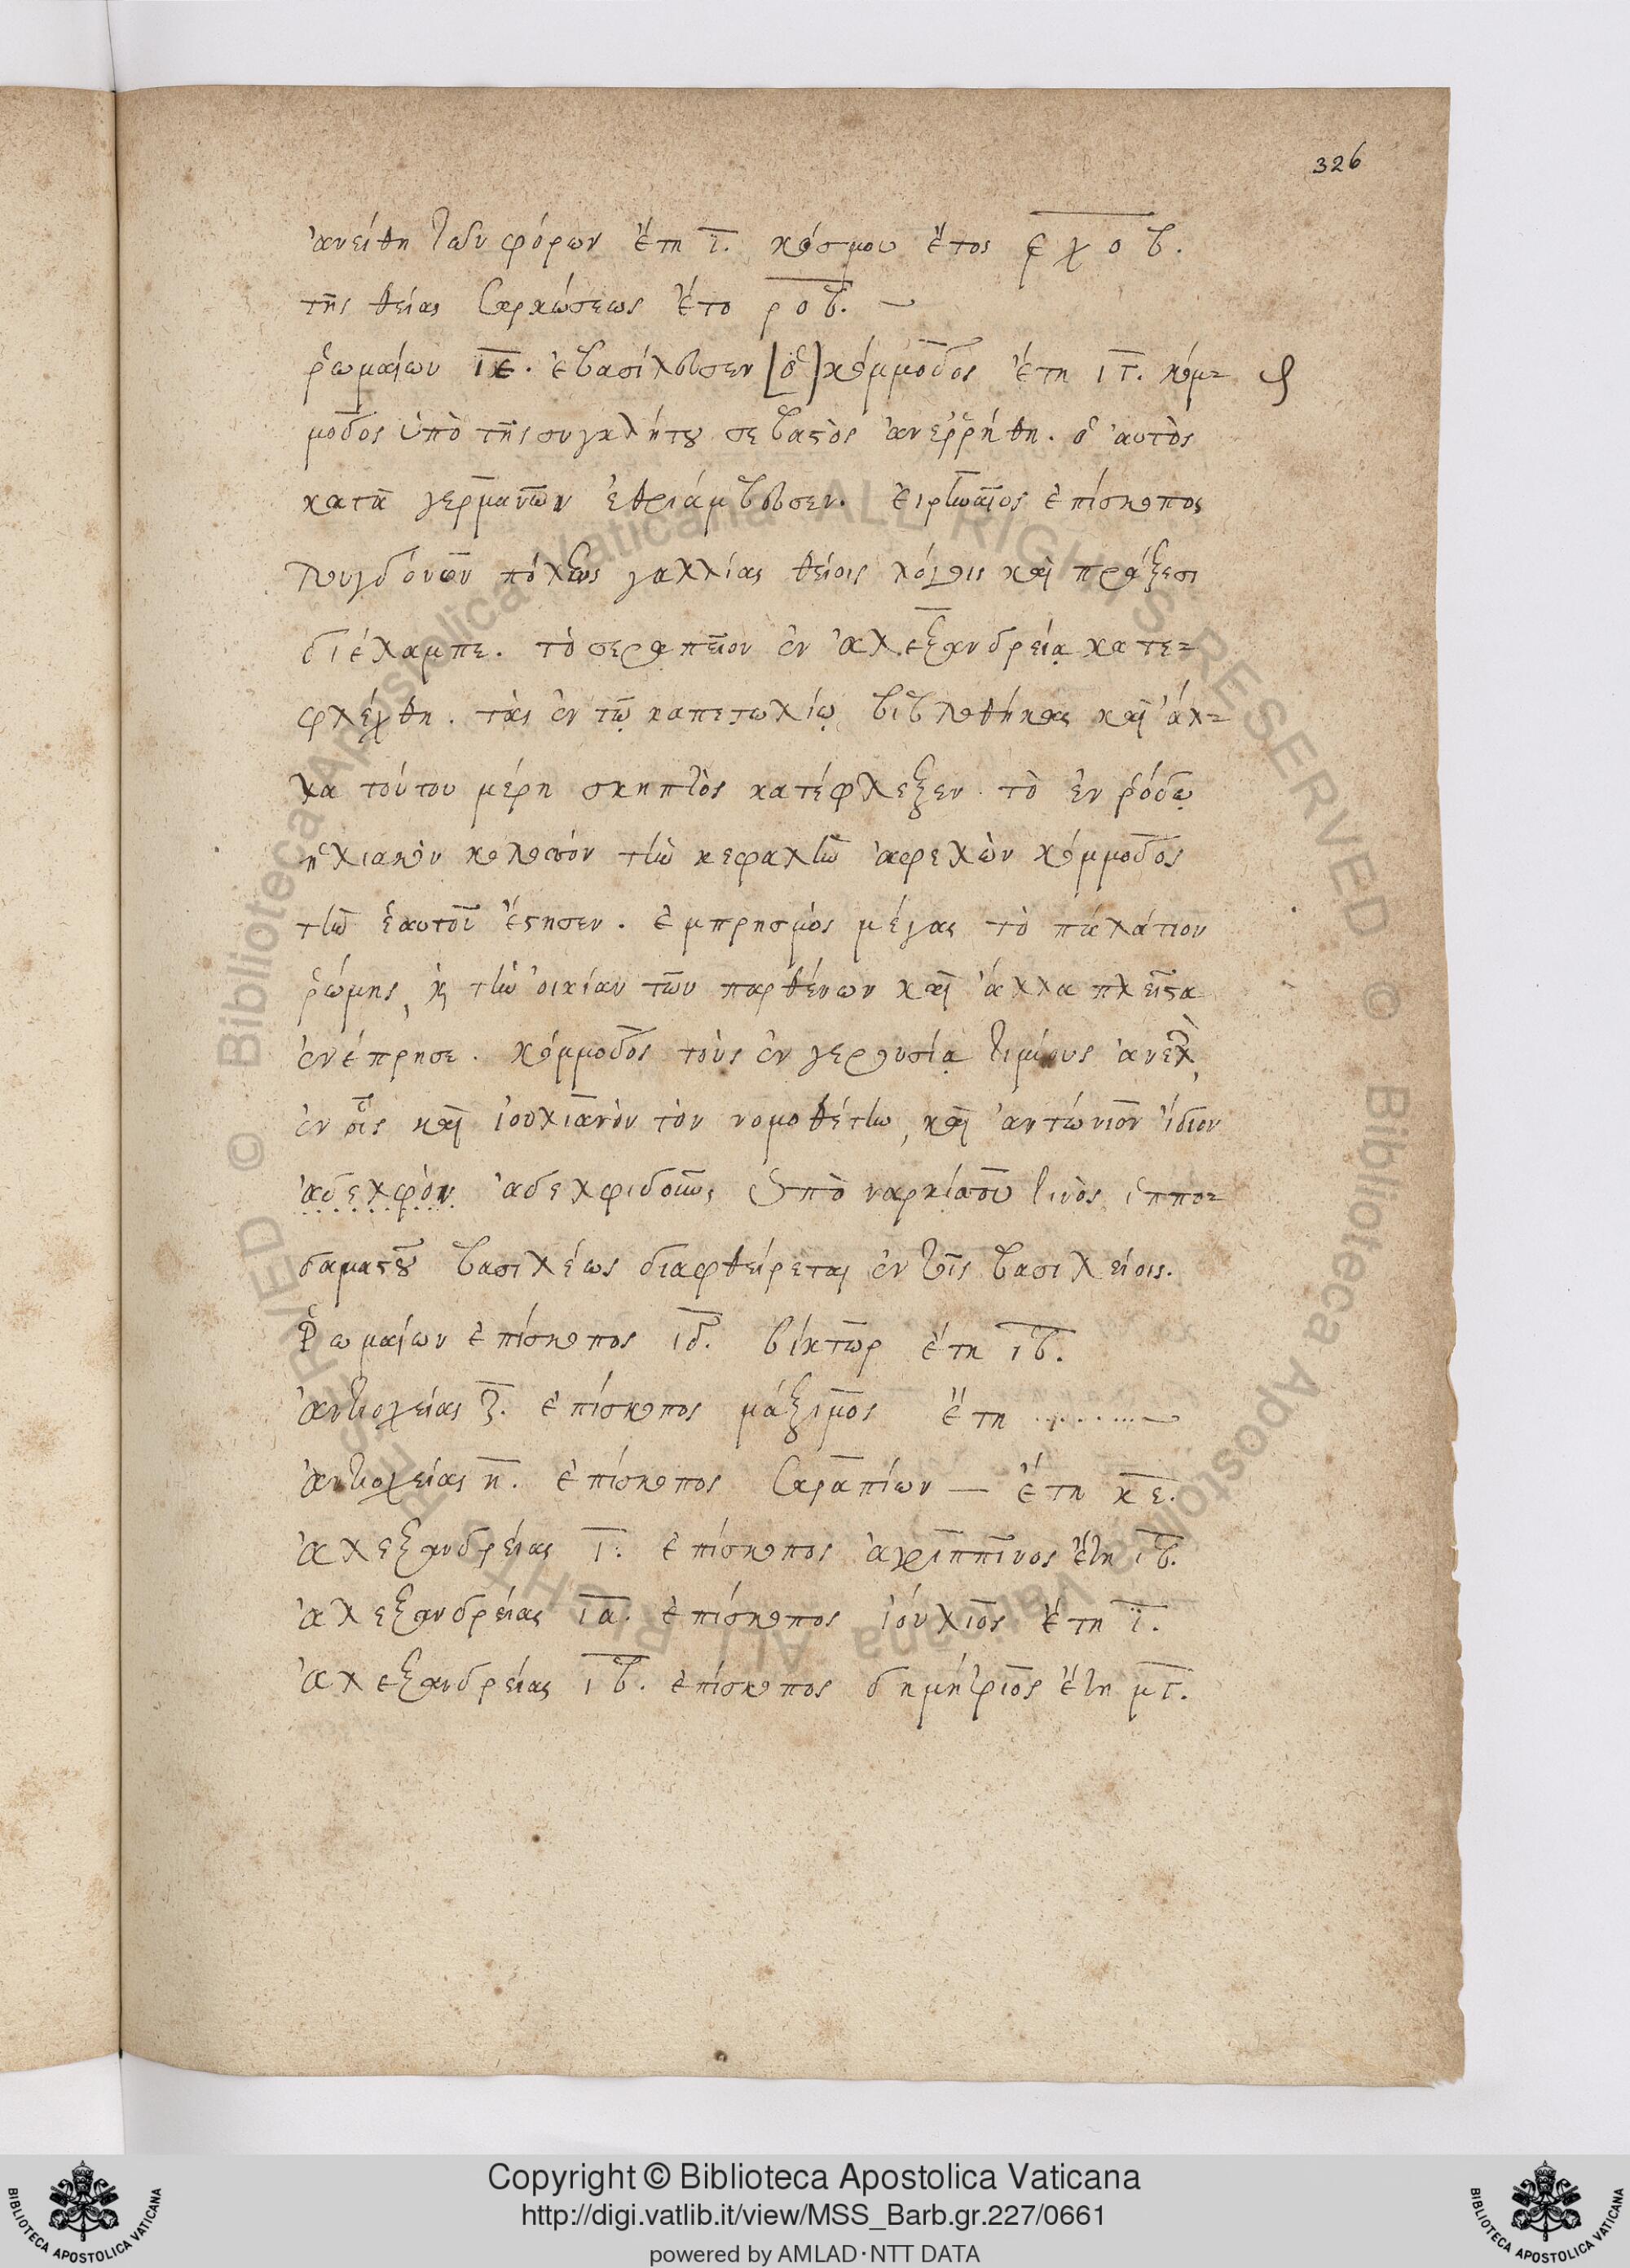 326
ἀνείθη τῶν φόρων ἔτη ι̅. κόσμου ἔτος ϛ̅χ̅ο̅β̅.
τῆς θείας σαρκώσεως ἔτο ρ̅ο̅β̅.
ῥωμαίων ι̅ε̅. ἐβασίλευσεν [ὁ] κόμμοδος ἔτη ι̅γ̅. κόμ=
μοδος ὑπὸ τῆς συγκλήτου σεβαστὸς ἀνερρήθη. ὁ αὐτὸς
κατὰ γερμανῶν ἐθριάμβευσεν. εἰρηναῖος ἐπίσκοπος
λουγδόνων πόλεως γαλλίας θείοις λόγοις καὶ πράξεσι
διέλαμπε. τὸ σεραπεῖον ἐν ἀλεξανδρείᾳ κατε=
φλέχθη. τὰς ἐν τῷ καπετωλίῳ βιβλιοθήκας καὶ ἄλ=
λα τούτου μέρη σκηπτὸς κατέφλεξεν. τὸ ἐν ῥόδῳ
ἡλιακὸν κολοσὸν τὴν κεφαλὴν ἀφελὼν κόμμοδος
τὴν ἑαυτοῦ ἔστησεν. ἐμπρησμὸς μέγας τὸ παλάτιον
ῥώμης, κ̀ τὴν οἰκίαν τῶν παρθένων καὶ ἄλλα πλεῖστα
ἐνέπρησε. κόμμοδος τοὺς ἐν γερουσίᾳ τιμίους ἀνεῖλ,
ἐν οἷς καὶ ἰουλιανὸν τὸν νομοθέτην, καὶ ἀντώνιον ἴδιον
ἀδελφὸν ἀδελφιδοῦς ὑπὸ ναρκίσου τινὸς ἱππο=
δαμαστοῦ βασιλέως διαφθείρεται ἐν τοῖς βασιλείοις.
Ῥωμαίων ἐπίσκοπος ι̅δ̅. βίκτωρ ἔτη ι̅β̅.
ἀντιοχείας ζ̅. ἐπίσκοπος μάξιμος ἔτη .........
ἀντιοχείας η̅. ἐπίσκοπος σαραπίων — ἔτη κ̅ε̅.
ἀλεξανδρείας ι̅. ἐπίσκοπος ἀγριππῖνος ἔτη ι̅β̅.
ἀλεξανδρείας ι̅α̅. ἐπίσκοπος ἰούλιος ἔτη ι̅.
ἀλεξανδρείας ι̅β̅. ἐπίσκοπος δημήτριος ἔτη μ̅γ̅.
Copyright © Biblioteca Apostolica Vaticana
http://digi.vatlib.it/view/MSS_Barb.gr.227/0661
powered by AMLAD·NTT DATA
BIBLIOTECA APOSTOLICA VATICANA
BIBLIOTECA APOSTOLICA VATICANA